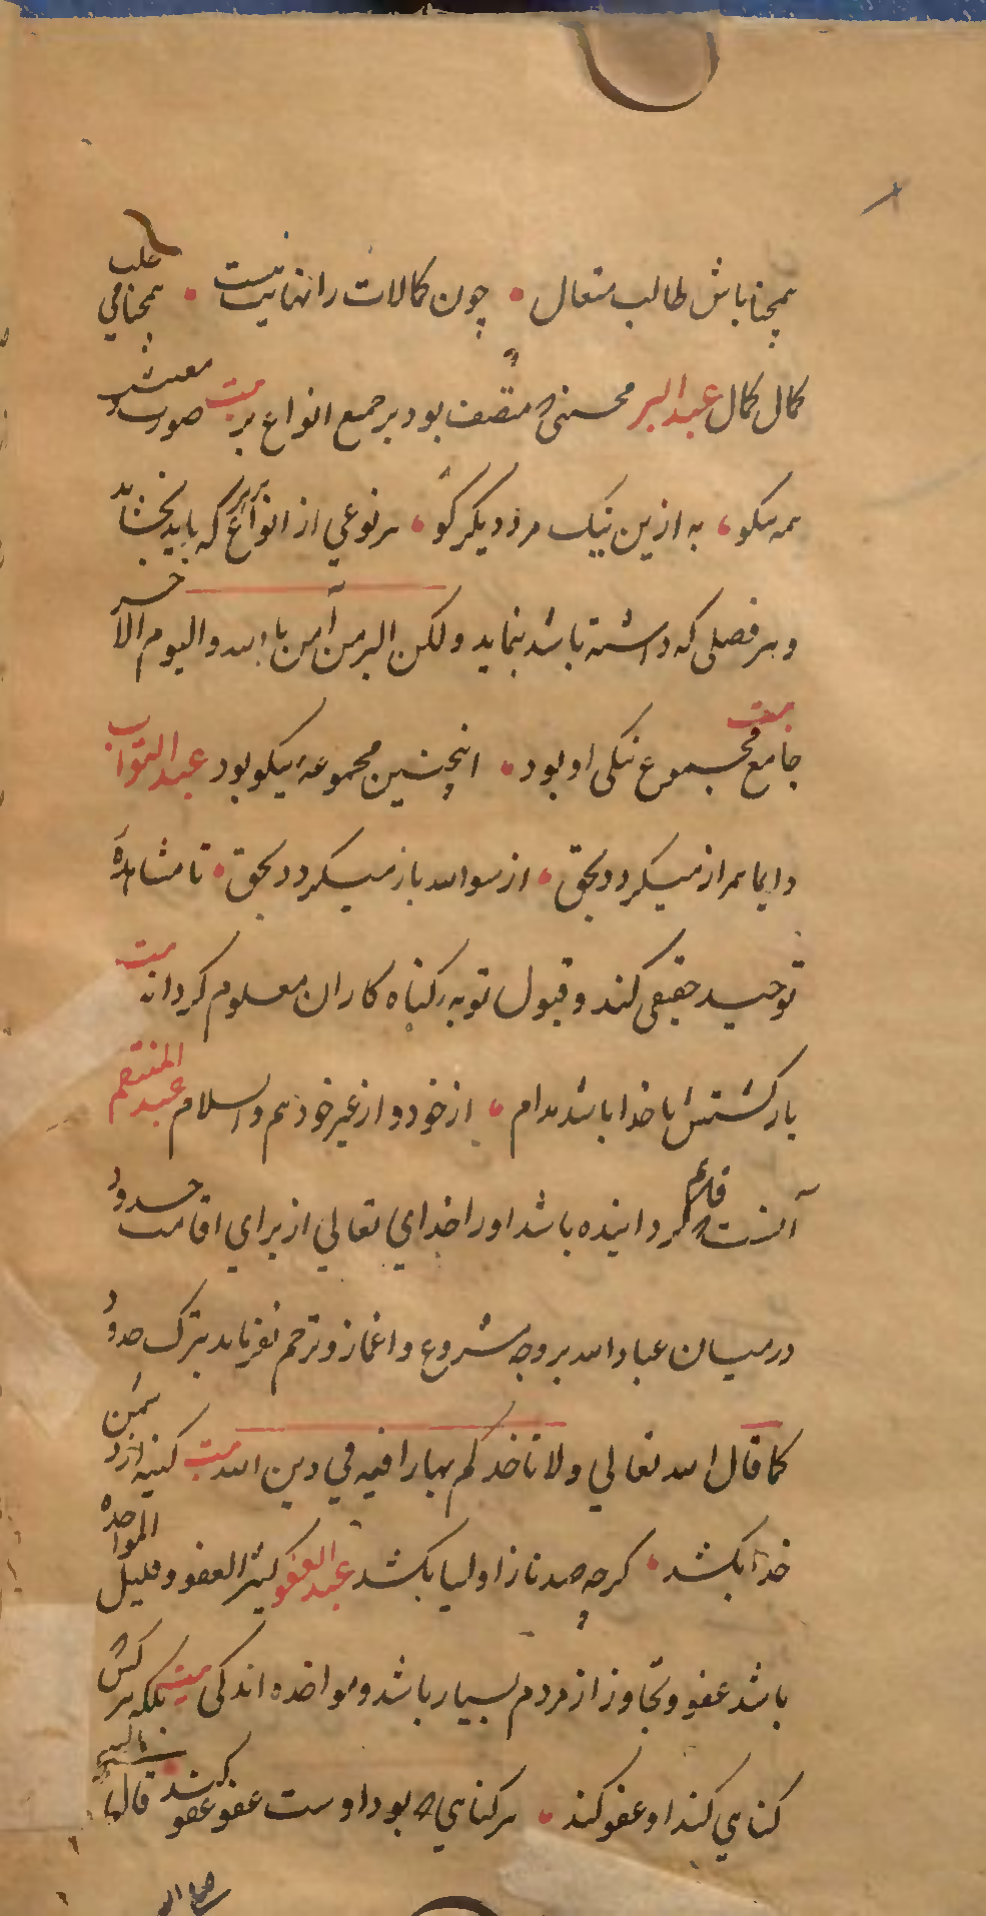 همچنان باش طالب متعال • چون کمالات را نهایت نیست • همچنان می طلب
کمال کمال عبد البر محسنی که متصف بود بر جمیع انواع بر بیت صورت و معنیش
همه نیکو • به ازین نیک مرد دیگر کو • هر نوعی از انواع بر که باید بخشاید
و هر فصلی که داشته باشد بنماید ولکن البر من آمن بالله والیوم الآخر
بیت جامع مجموع نیکی او بود • اینچنین مجموعه نیکو بود عبد التواب
دایما همراز میگردد بحق • از سوا الله باز میگردد بحق • تا مشاهده
توحید حقیقی کند و قبول توبه گناه کاران معلوم گرداند بیت
بازگشتش با خدا باشد مدام • از خود و از غیر خود هم والسلام عبد المنتقم
آنست که قائم گردانیده باشد او را خدای تعالی از برای اقامت حدود
در میان عباد الله بر وجه مشروع و اغماز و ترحم نفرماید بترک حدود
کما قال الله تعالی ولا تاخذکم بهما رافة فی دین الله بیت کینه از دشمن
خدا بکشد • گرچه صد ناز اولیا بکشد عبد العفو کثیر العفو و قلیل المواخذه
باشد عفو و تجاوز از مردم بسیار باشد و مواخذه اندکی بیت بلکه هر کش
گناهی کند او عفو کند • هر گناهی که بود اوست عفو عفو کند قال النبی
صلی الله